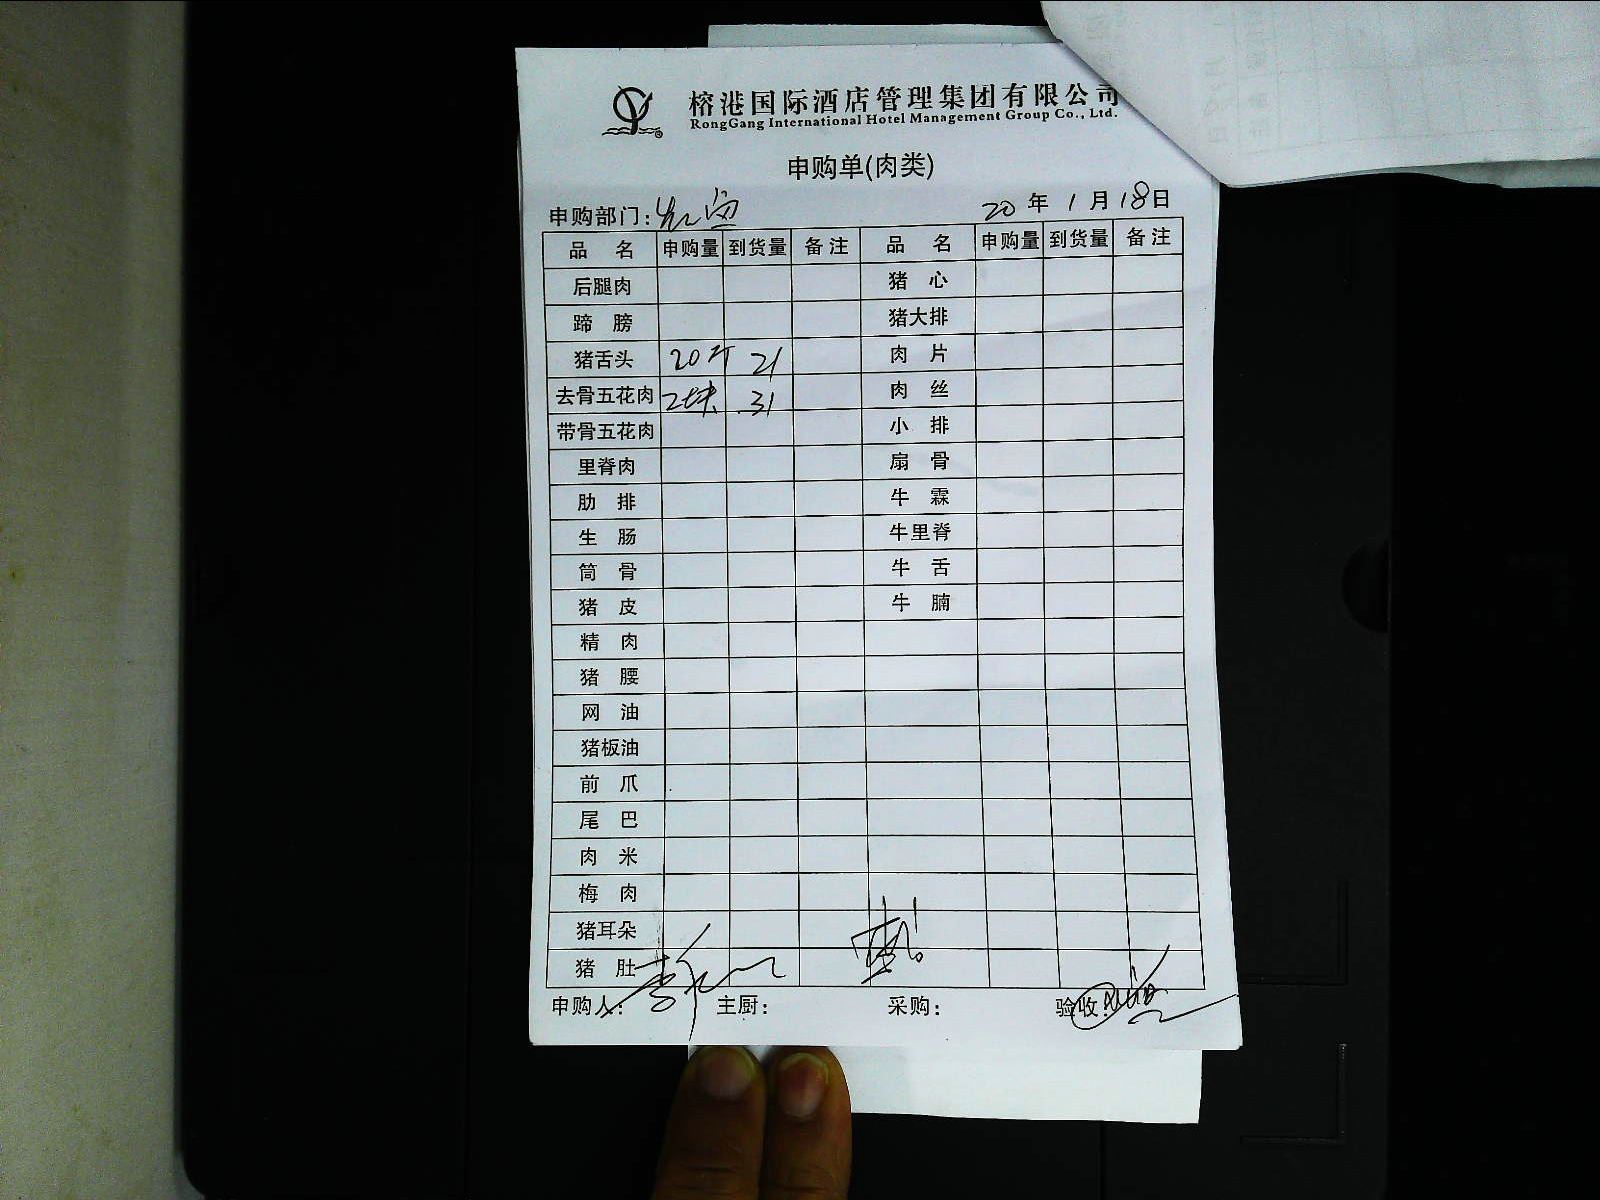 榕港国际酒店管理集团有限公司
RongGang International Hotel Management Group Co., Ltd.
申购单(肉类)
申购部门: 20 年 1 月 18 日
品 名 申购量 到货量 备注 品 名 申购量 到货量 备注
后腿肉 猪 心
蹄 膀 猪大排
猪舌头 20斤 21 肉 片
去骨五花肉 2块 31 肉 丝
带骨五花肉 小 排
里脊肉 扇 骨
肋 排 牛 霖
生 肠 牛里脊
筒 骨 牛 舌
猪 皮 牛 腩
精 肉
猪 腰
网 油
猪板油
前 爪
尾 巴
肉 米
梅 肉
猪耳朵
猪 肚
申购人: 主厨: 采购: 验收: